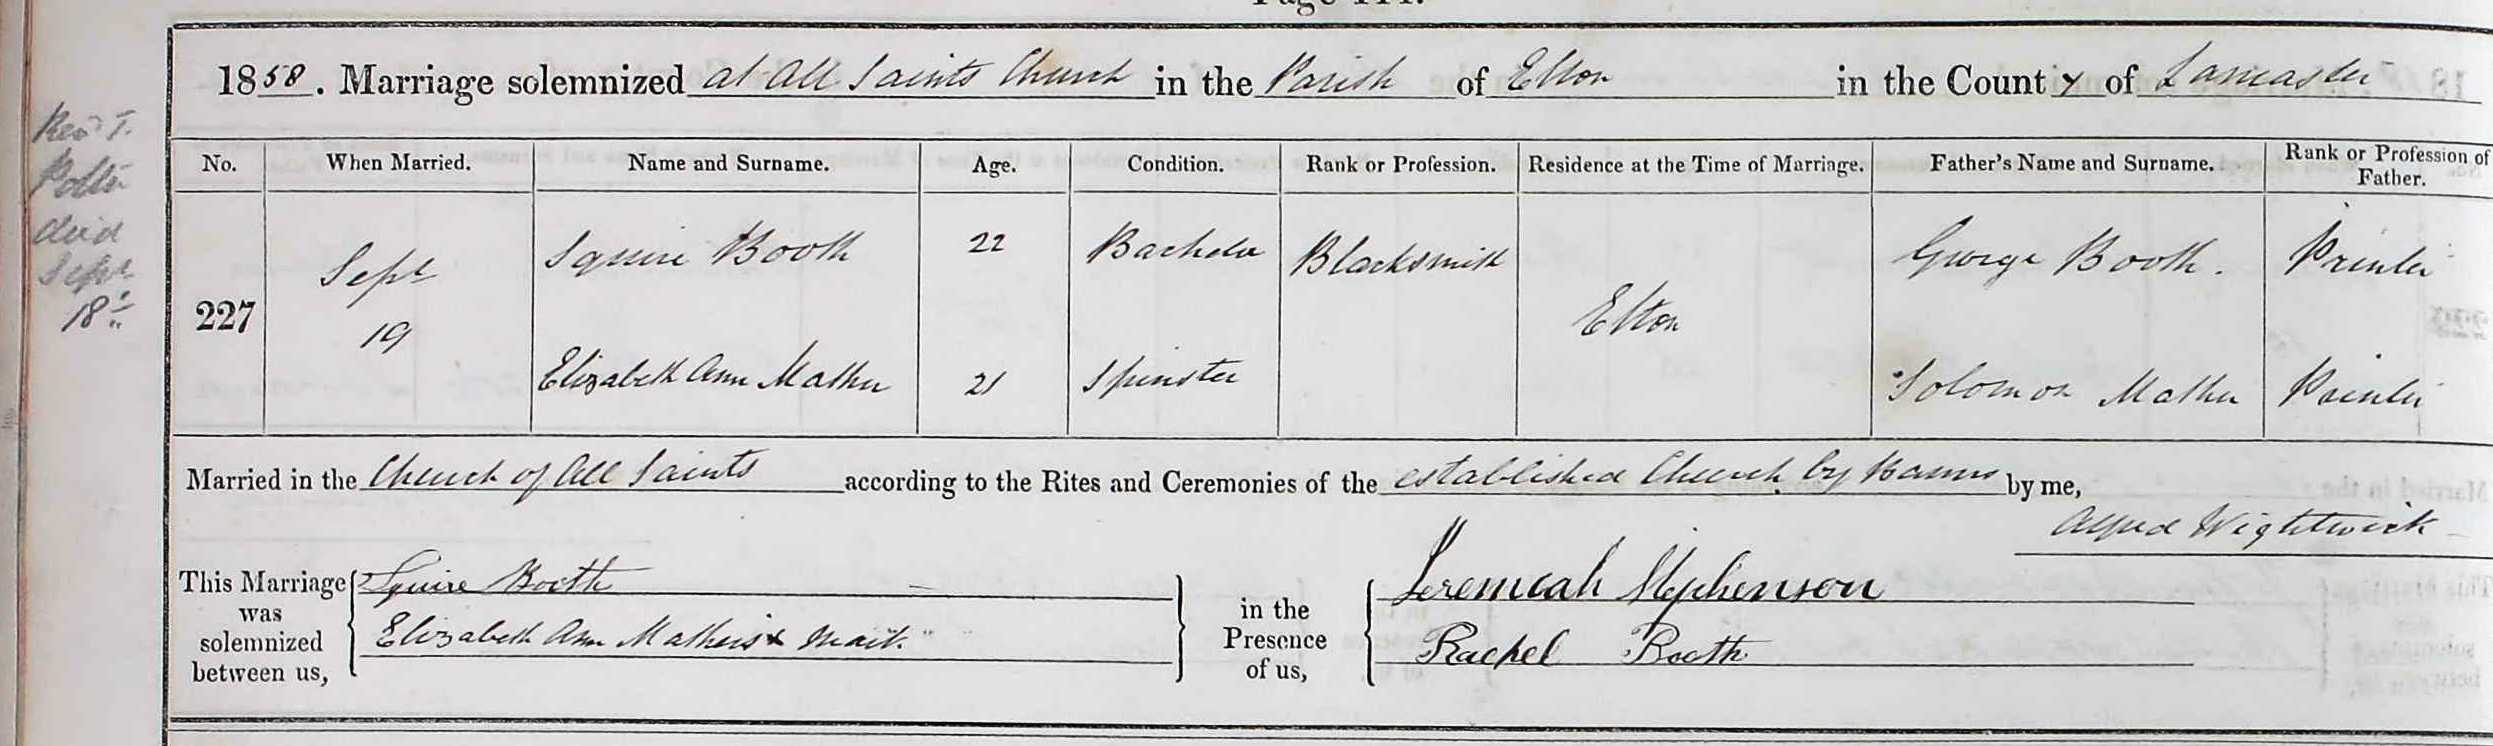 Page 114.
1858. Marriage solemnized at All Saints Church in the Parish of Elton in the County of Lancaster
Revd T.
Potter
died
Sept
18th
No. When Married. Name and Surname. Age. Condition. Rank or Profession. Residence at the Time of Marriage. Father's Name and Surname. Rank or Profession of Father.
Squire Booth 22 Bachelor Blacksmith George Booth. Printer
227 Sept 19 Elton
Elizabeth Ann Mather 21 Spinster Solomon Mather Printer
Married in the Church of All Saints according to the Rites and Ceremonies of the established Church by Banns by me,
Alfred Wightwick
This Marriage was solemnized between us, Squire Booth in the Presence of us, Jeremeah Stephenson
Elizabeth Ann Mather's x mark. Rachel Booth